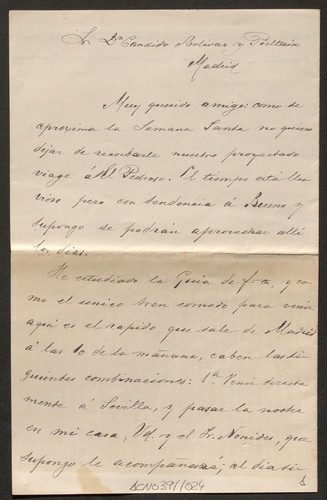 Sr Dn Candido Bolivar y Pieltain
Madrid
Muy querido amigo: como se
aproxima la Semana Santa no quiero
dejar de recordarle nuestro proyectado
viage á El Pedroso. El tiempo está llu
vioso pero con tendencia á Bueno y
supongo se podrán aprovechar allí
los dias.
He estudiado la Guia de f-c, y co
mo el unico tren comodo para venir
aqui es el rapido que sale de Madrid
á las 10 de la mañana, caben las si
guientes combinaciones: 1ª Venir directa
mente á Sevilla, y pasar la noche
en mi casa, Vd. y el Sr. que
supongo le acompañará; al dia si
ACN0391/024